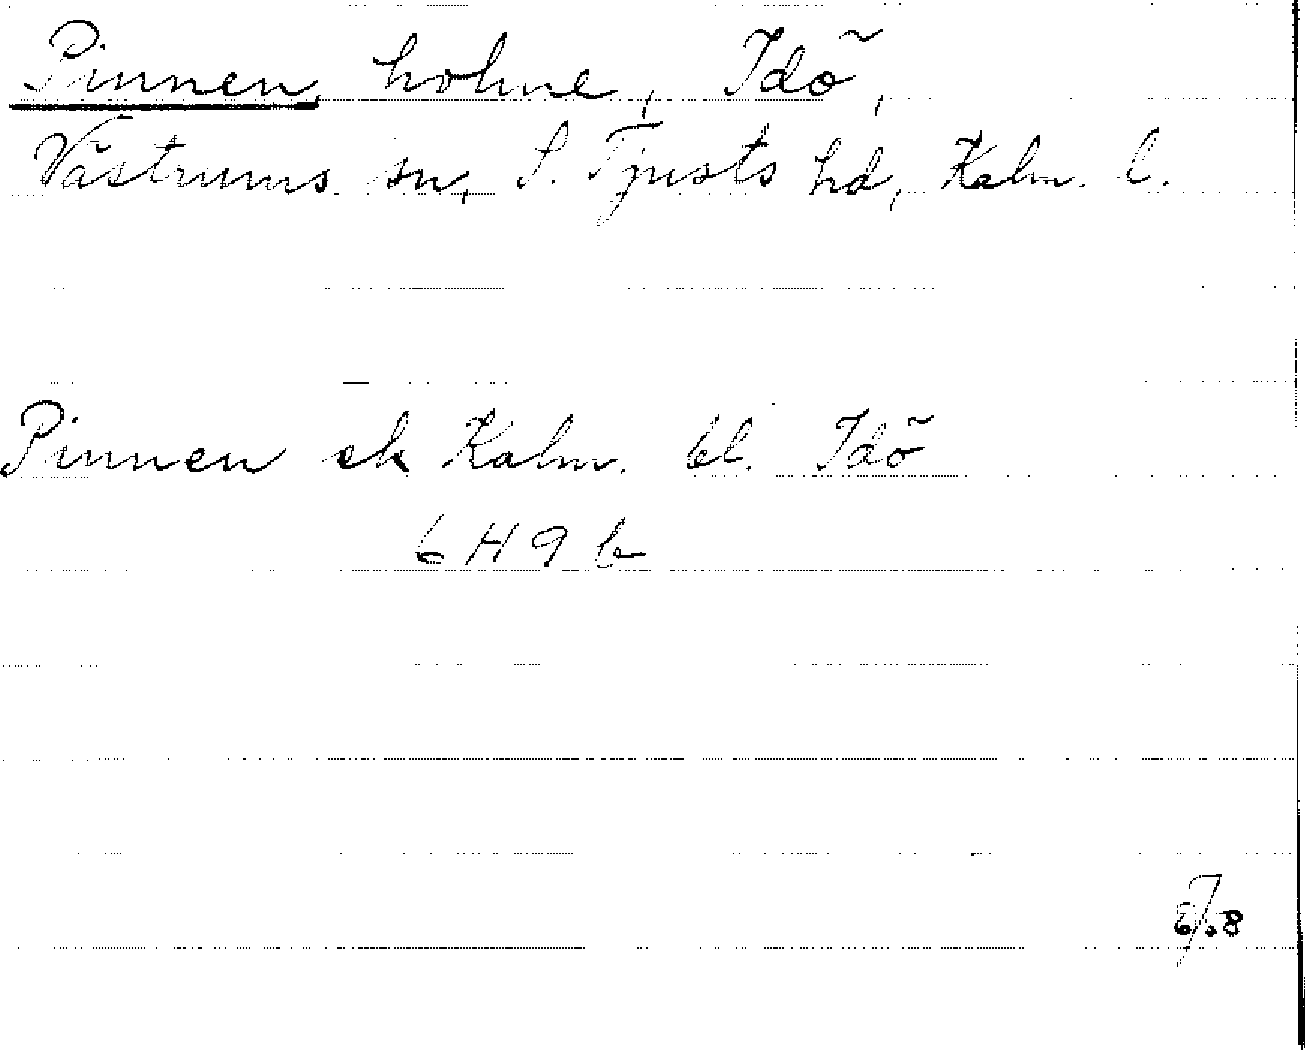 Pinnen, holme, Idö,
Västrums sn, S. Tjusts hd, Kalm. l.
Pinnen ek Kalm. bl. Idö
6 H 9 b